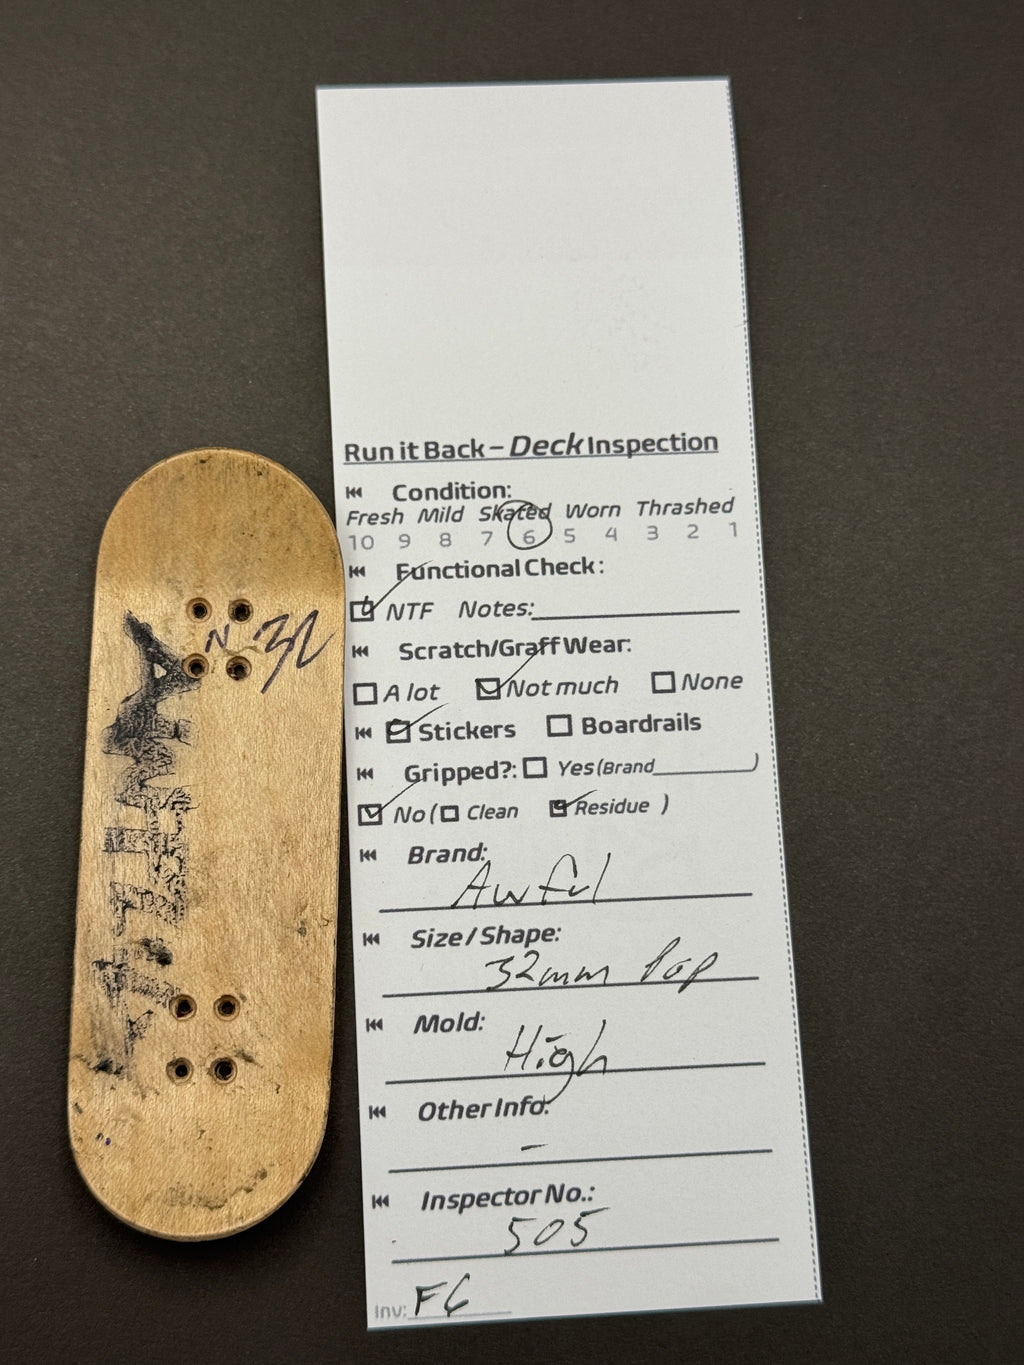 N 32
Run it Back – Deck Inspection
Condition:
Fresh Mild Skated Worn Thrashed
10 9 8 7 6 5 4 3 2 1
Functional Check:
☑ NTF Notes:
Scratch/Graff Wear:
☐ A lot ☑ Not much ☐ None
☑ Stickers ☐ Boardrails
Gripped?: ☐ Yes (Brand )
☑ No ( ☐ Clean ☑ Residue )
Brand:
Awful
Size / Shape:
32mm Pop
Mold:
High
Other Info:
-
Inspector No.:
505
Inv: F6